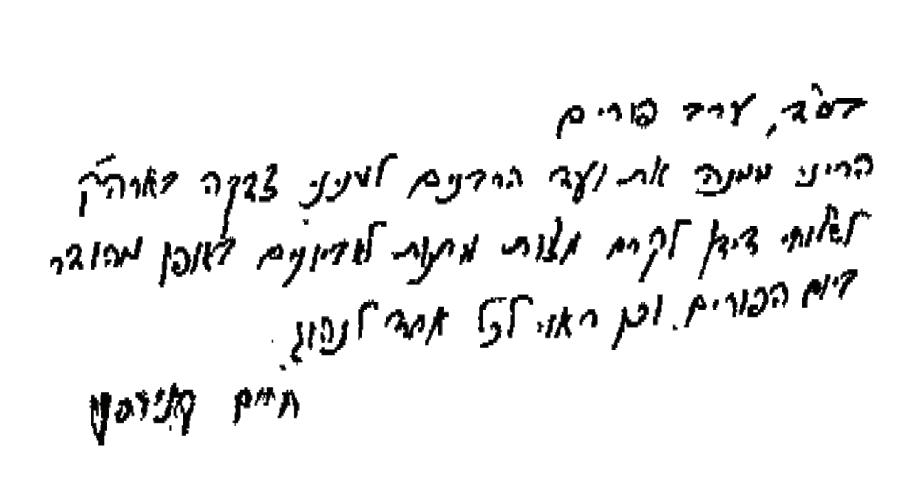 בס"ד, ערב פורים
הריני ממנה את ועד הרבנים לעניני צדקה בארה"ק
לשלוחי דידן לקיים מצות מתנות לאביונים באופן מהובר
ביום הפורים. וכן ראוי לכל אחד לנהוג.
חיים קניבסקי